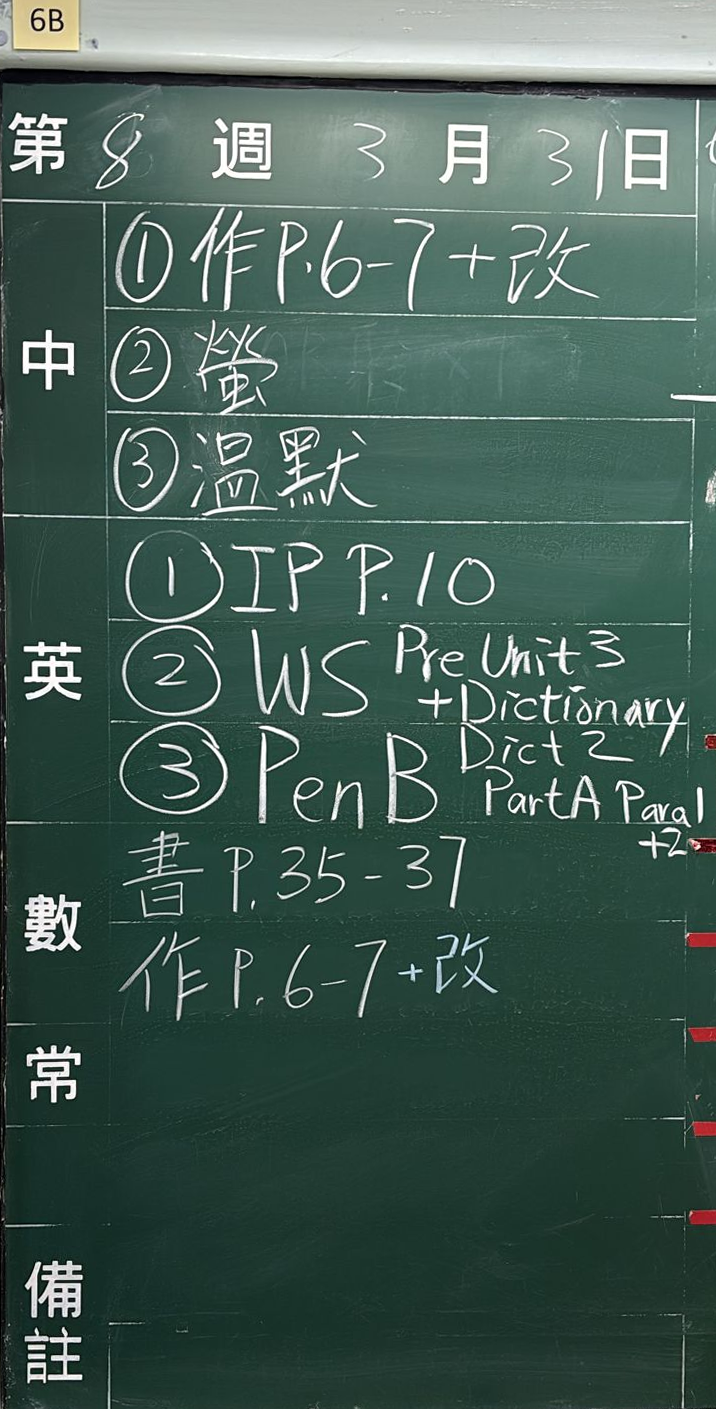 6B
第 8 週 3 月 31 日
中
① 作 P.6-7 + 改
② 螢
③ 温默
英
① IP P.10
② WS Pre Unit 3
+Dictionary
③ Pen B Dict 2
Part A Para 1
+2
數
書 P.35-37
作 P.6-7 + 改
常
備註